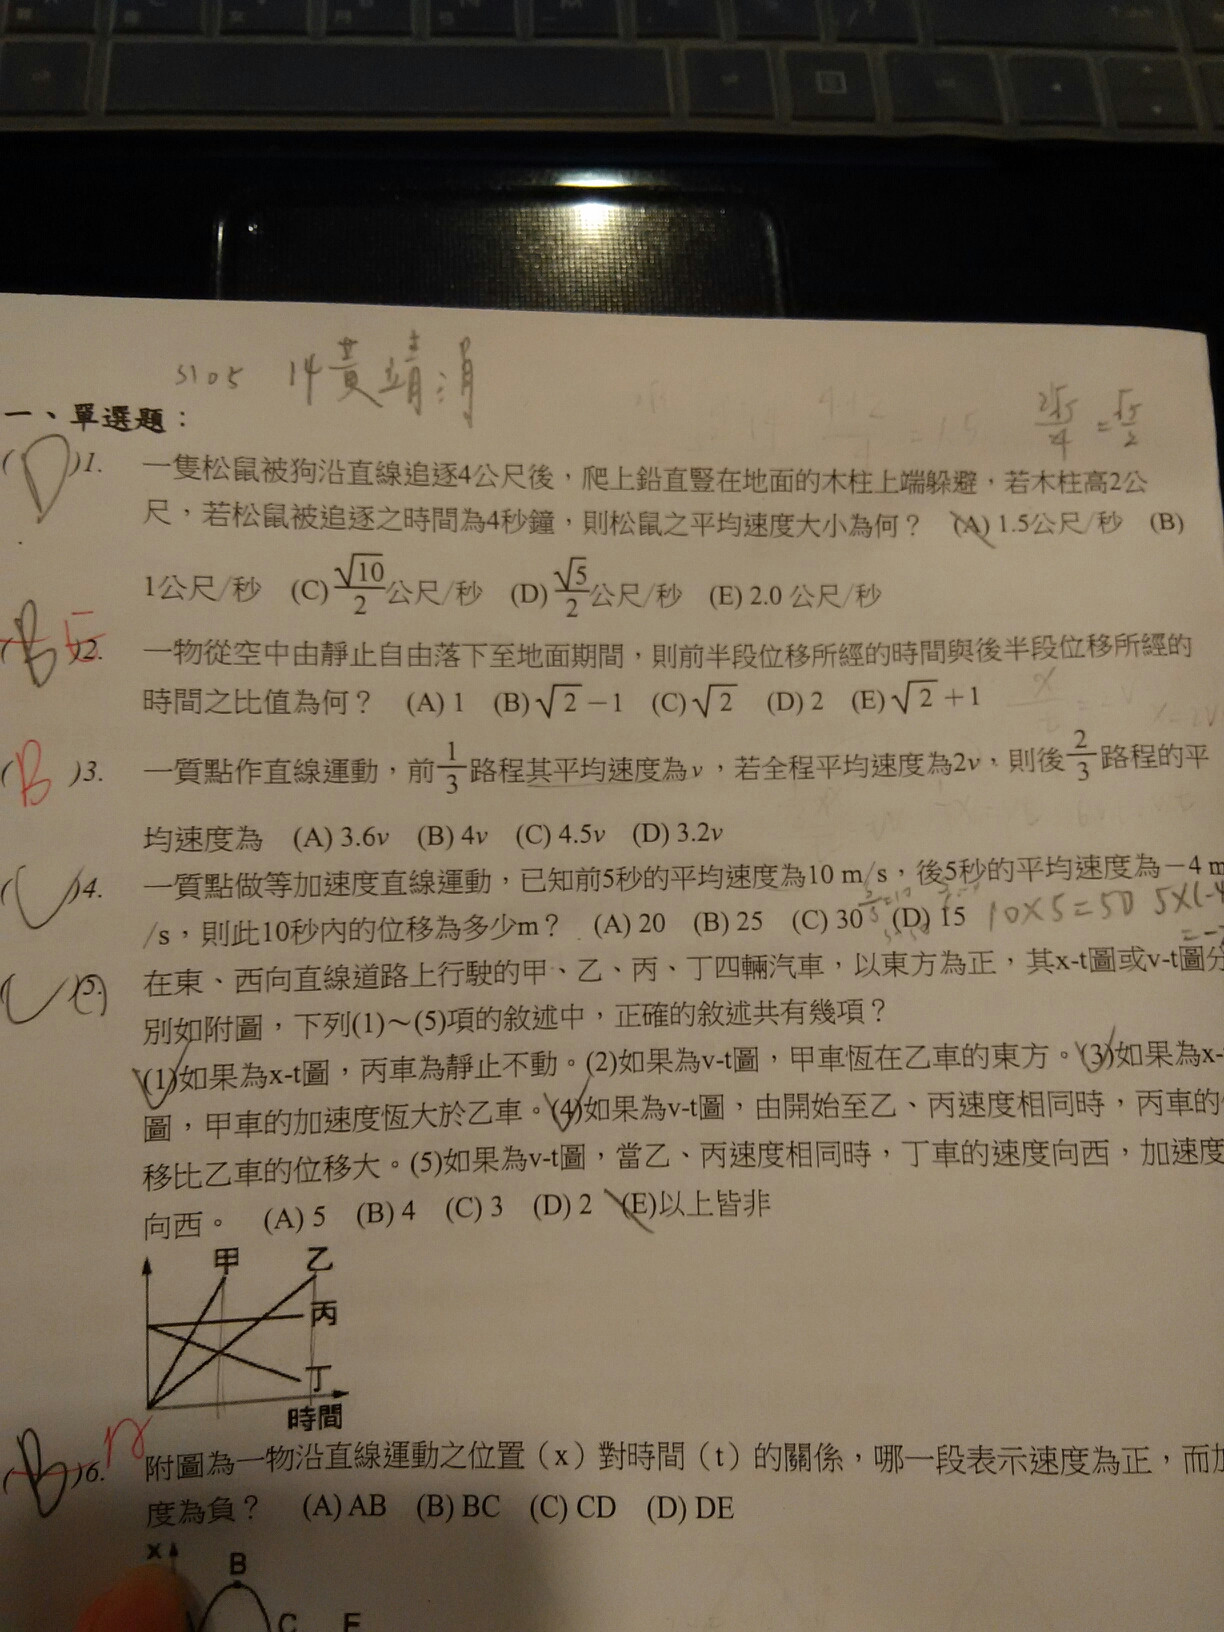 5105 14 黃靖涓
2√5/4 = √5/2
一、單選題：
(D)1. 一隻松鼠被狗沿直線追逐4公尺後，爬上鉛直豎在地面的木柱上端躲避，若木柱高2公
尺，若松鼠被追逐之時間為4秒鐘，則松鼠之平均速度大小為何？ (A) 1.5公尺/秒 (B)
1公尺/秒 (C) √10/2 公尺/秒 (D) √5/2 公尺/秒 (E) 2.0 公尺/秒
(B E)2. 一物從空中由靜止自由落下至地面期間，則前半段位移所經的時間與後半段位移所經的
時間之比值為何？ (A) 1 (B) √2－1 (C) √2 (D) 2 (E) √2＋1
(B)3. 一質點作直線運動，前1/3路程其平均速度為v，若全程平均速度為2v，則後2/3路程的平
均速度為 (A) 3.6v (B) 4v (C) 4.5v (D) 3.2v
( )4. 一質點做等加速度直線運動，已知前5秒的平均速度為10 m/s，後5秒的平均速度為－4 m
/s，則此10秒內的位移為多少m？ (A) 20 (B) 25 (C) 30 (D) 15 10×5=50 5×(-4
( )5. 在東、西向直線道路上行駛的甲、乙、丙、丁四輛汽車，以東方為正，其x-t圖或v-t圖分
別如附圖，下列(1)～(5)項的敘述中，正確的敘述共有幾項？
(1)如果為x-t圖，丙車為靜止不動。(2)如果為v-t圖，甲車恆在乙車的東方。(3)如果為x-
圖，甲車的加速度恆大於乙車。(4)如果為v-t圖，由開始至乙、丙速度相同時，丙車的
移比乙車的位移大。(5)如果為v-t圖，當乙、丙速度相同時，丁車的速度向西，加速度
向西。 (A) 5 (B) 4 (C) 3 (D) 2 (E)以上皆非
甲 乙
丙
丁
時間
(B D)6. 附圖為一物沿直線運動之位置（x）對時間（t）的關係，哪一段表示速度為正，而加
度為負？ (A) AB (B) BC (C) CD (D) DE
x B
C E